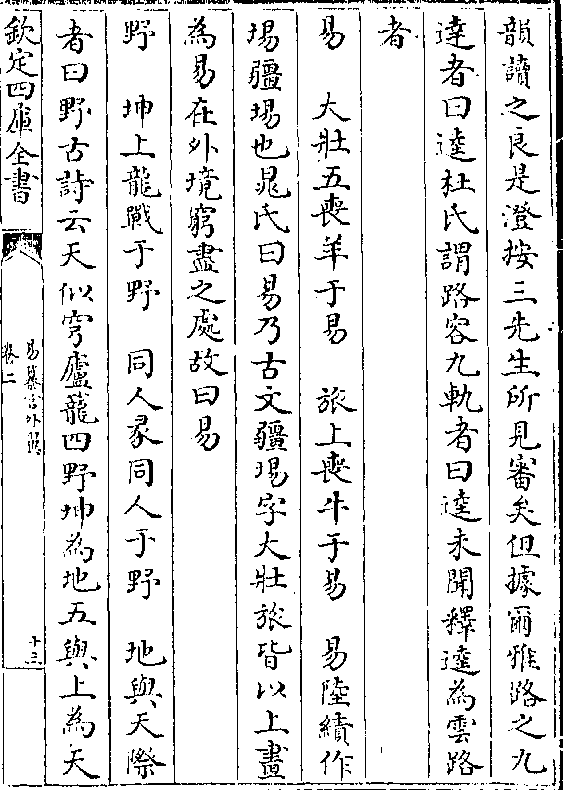 韻讀之良是澄按三先生所見審矣但據爾雅路之九
達者曰逵杜氏謂路容九軌者曰逵未聞釋逵為雲路
者
易　大壯五喪羊于易　旅上喪牛于易　易陸績作
埸疆埸也晁氏曰易乃古文疆埸字大壯旅皆以上畫
為易在外境窮盡之處故曰易
野　坤上龍戰于野　同人彖同人于野　地與天際
者曰野古詩云天似穹廬籠四野坤為地五與上為天
欽定四庫全書
易纂言外翼
卷二
十三